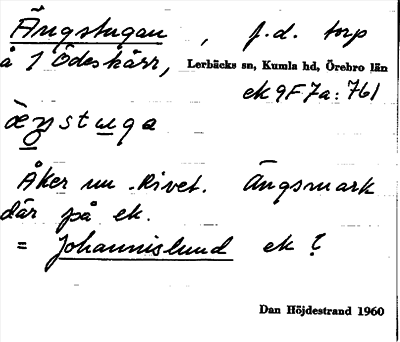 Ängstugan, f.d. torp
å 1 Ödeskärr, Lerbäcks sn, Kumla hd, Örebro län
ek 9F7a: 761
Åker nu. Rivet. Ängsmark
där på ek.
= Johannislund ek ?
Dan Höjdestrand 1960